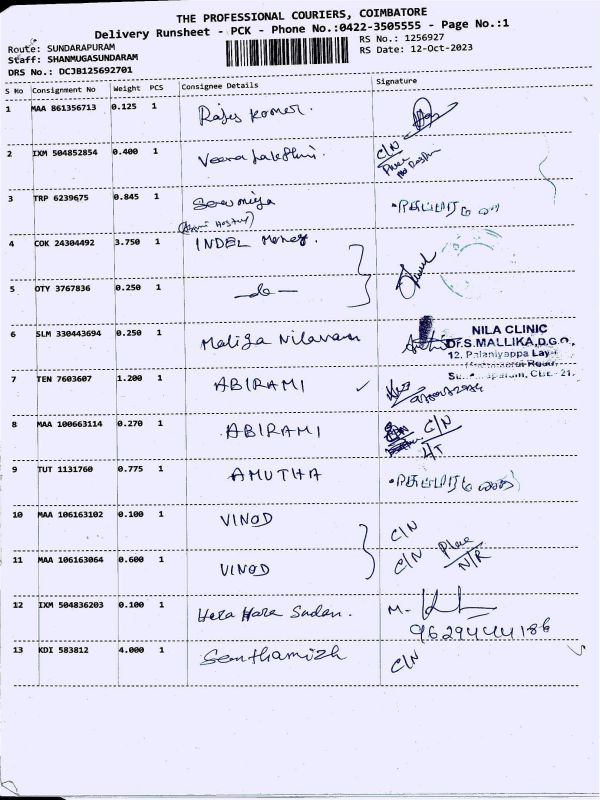 THE PROFESSIONAL COURIERS, COIMBATORE
Delivery Runsheet - PCK - Phone No.:0422-3505555 - Page No.:1
Route: SUNDARAPURAM
RS No.: 1256927
Staff: SHANMUGASUNDARAM
RS Date: 12-Oct-2023
DRS No.: DCJB125692701
S No Consignment No Weight PCS Consignee Details Signature
1 MAA 861356713 0.125 1 Rajes Komer.
2 IXM 504852854 0.400 1 Veera Lakshmi. C/N
3 TRP 6239675 0.845 1 Sowmiya
4 COK 24304492 3.750 1 INDEL Money.
5 OTY 3767836 0.250 1 —do—
6 SLM 330443694 0.250 1 Maliga Nilavan
NILA CLINIC
Dr.S.MALLIKA,D.G.O.,
12, Palaniyappa Lay-
7 TEN 7603607 1.200 1 ABIRAMI ✓
8 MAA 100663114 0.270 1 ABIRAMI C/N
9 TUT 1131760 0.775 1 AMUTHA
10 MAA 106163102 0.100 1 VINOD C/N
11 MAA 106163064 0.600 1 VINOD C/N Phone N/R
12 IXM 504836203 0.100 1 Hera Hara Sudan. M-
9629444186
13 KDI 583812 4.000 1 Senthamizh C/N